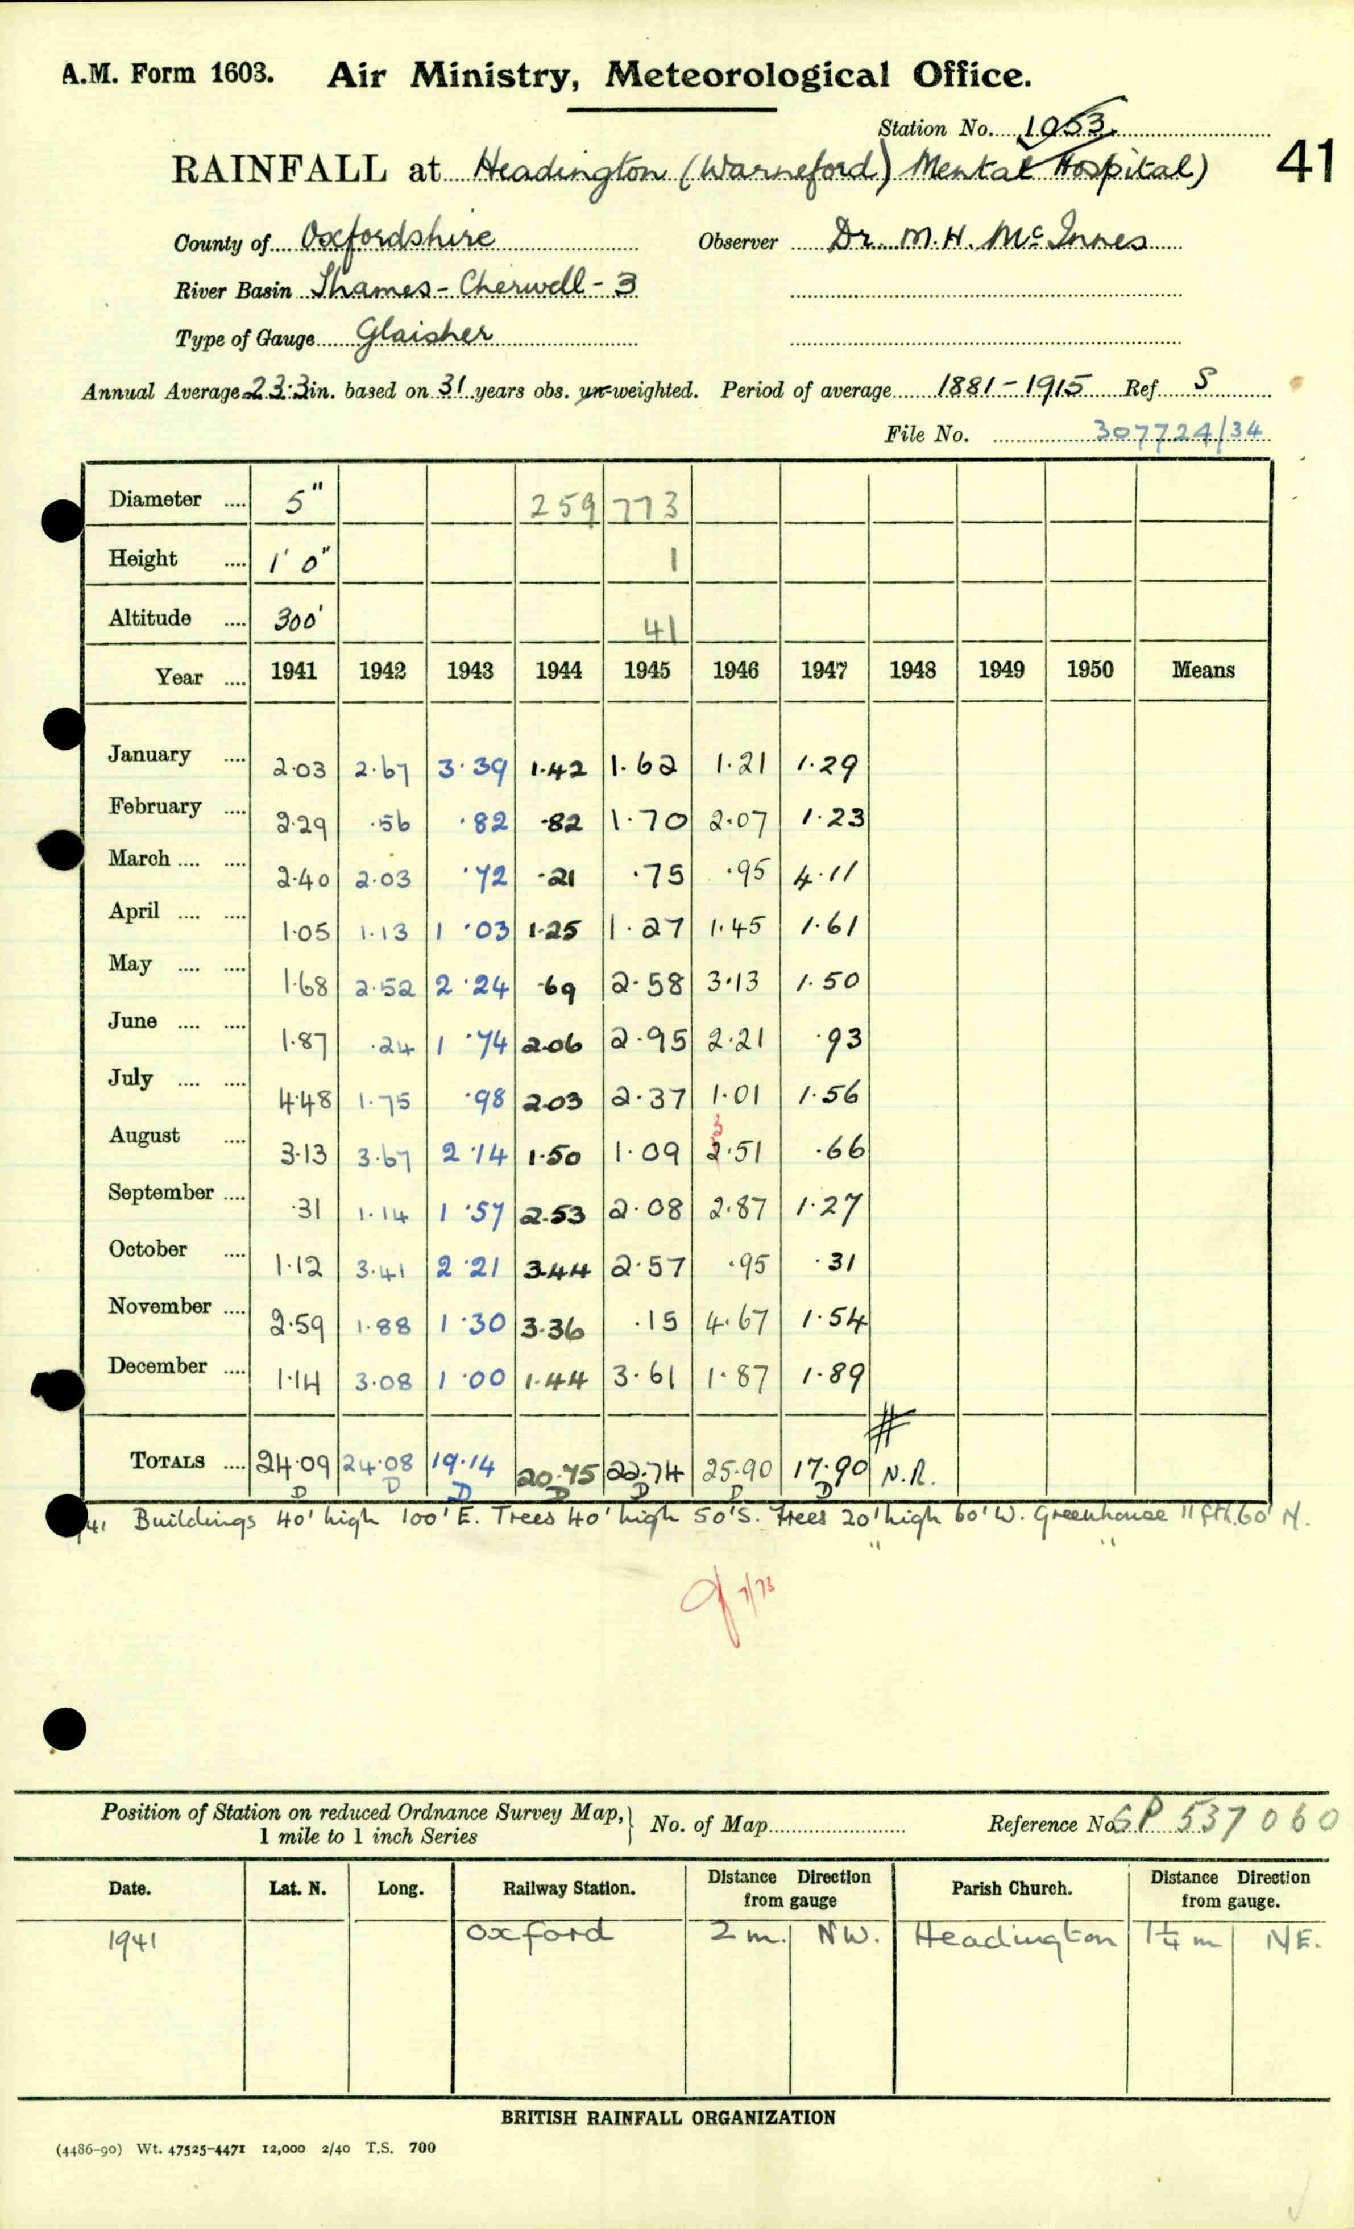 A.M. Form 1603. Air Ministry, Meteorological Office.
Station No. 1053
RAINFALL at Headington (Warneford) Mental Hospital) 41
County of Oxfordshire Observer Dr. M. H. McInnes
River Basin Thames - Cherwell - 3
Type of Gauge Glaisher
Annual Average 23.3 in. based on 31 years obs. un-weighted. Period of average 1881-1915 Ref S
File No. 307724/34
Diameter .... 5" 259 773
Height .... 1' 0" 1
Altitude .... 300' 41
Year .... 1941 1942 1943 1944 1945 1946 1947 1948 1949 1950 Means
January .... 2.03 2.67 3.39 1.42 1.62 1.21 1.29
February .... 2.29 .56 .82 .82 1.70 2.07 1.23
March .... .... 2.40 2.03 .72 .21 .75 .95 4.11
April .... .... 1.05 1.13 1.03 1.25 1.27 1.45 1.61
May .... .... 1.68 2.52 2.24 .69 2.58 3.13 1.50
June .... .... 1.87 .24 1.74 2.06 2.95 2.21 .93
July .... .... 4.48 1.75 .98 2.03 2.37 1.01 1.56
3
August .... 3.13 3.67 2.14 1.50 1.09 2.51 .66
September .... .31 1.14 1.57 2.53 2.08 2.87 1.27
October .... 1.12 3.41 2.21 3.44 2.57 .95 .31
November .... 2.59 1.88 1.30 3.36 .15 4.67 1.54
December .... 1.14 3.08 1.00 1.44 3.61 1.87 1.89
#
TOTALS .... 24.09 24.08 19.14 20.75 22.74 25.90 17.90 N.R.
D D D D D D D
41 Buildings 40' high 100' E. Trees 40' high 50' S. Trees 20' high 60' W. Greenhouse 11 ft h. 60' N.
" "
7/73
Position of Station on reduced Ordnance Survey Map, } No. of Map Reference No. SP 537 060
1 mile to 1 inch Series
Date. Lat. N. Long. Railway Station. Distance Direction from gauge Parish Church. Distance Direction from gauge.
1941 Oxford 2 m. NW. Headington 1¼ m NE.
BRITISH RAINFALL ORGANIZATION
(4486-90) Wt. 47525-4471 12,000 2/40 T.S. 700